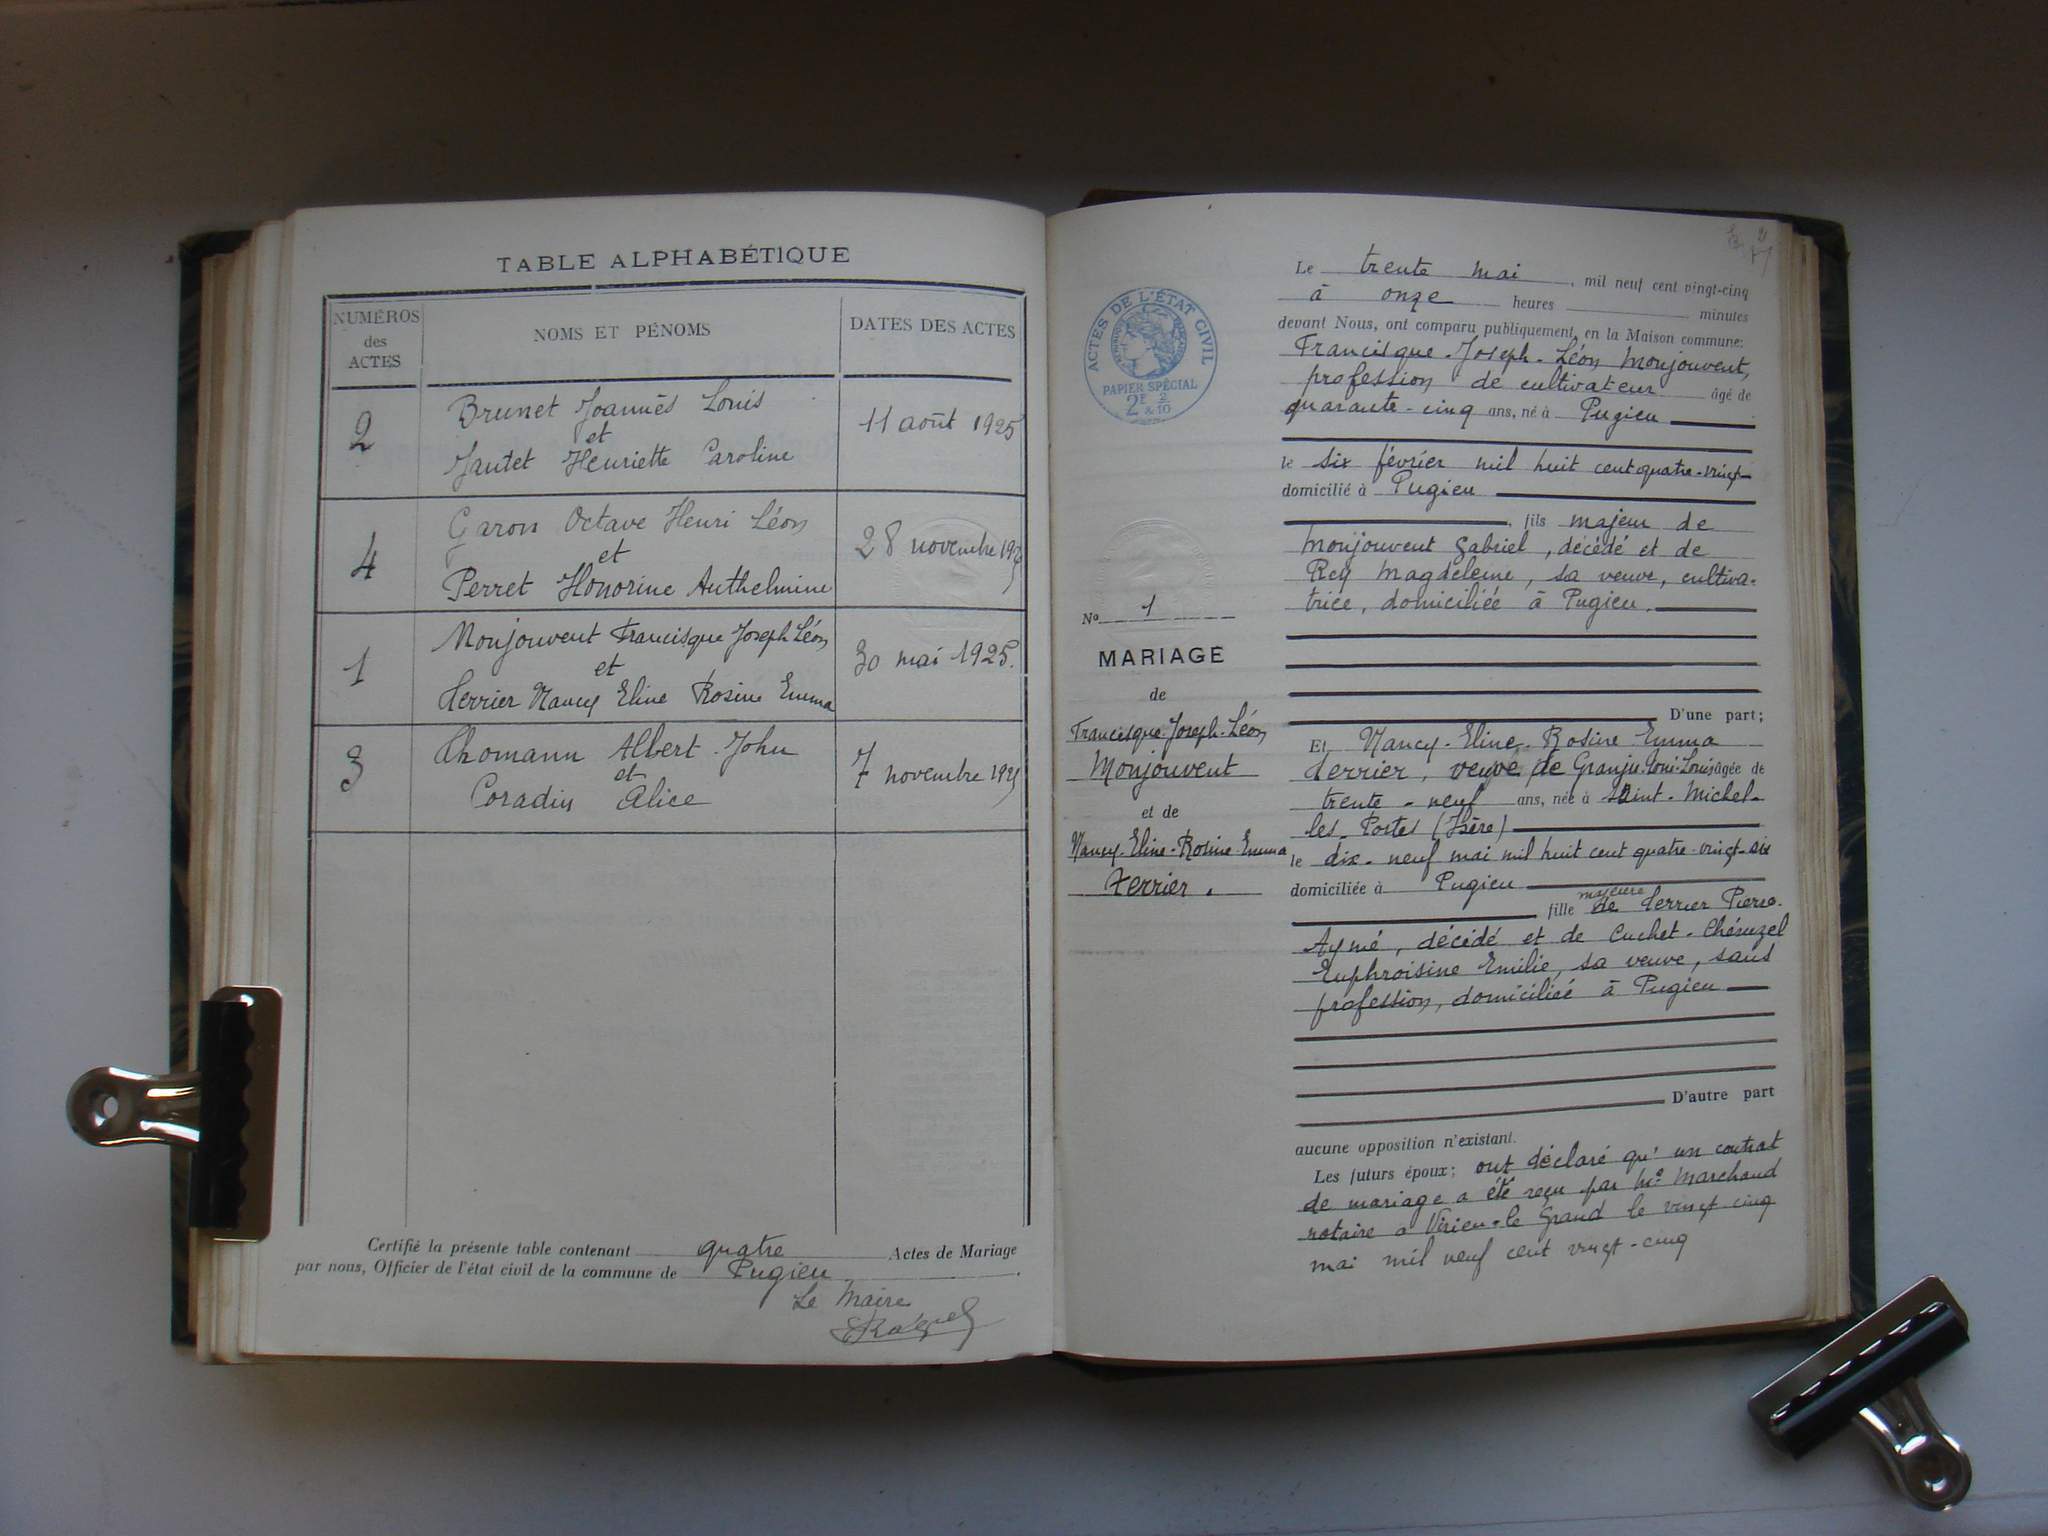 TABLE ALPHABÉTIQUE
NUMÉROS des ACTES
NOMS ET PÉNOMS
DATES DES ACTES
2
Brunet Joannès Louis
et
Jautet Henriette Caroline
11 août 1925
4
Garon Octave Henri Léon
et
Perret Honorine Anthelmine
28 novembre 1925
1
Monjouvent Francisque Joseph Léon
et
Terrier Nancy Eline Rosine Emma
30 mai 1925.
3
Thomann Albert John
et
Coradin Alice
7 novembre 1925
Certifié la présente table contenant quatre Actes de Mariage
par nous, Officier de l'état civil de la commune de Pugieu.
Le Maire
ACTES DE L'ÉTAT CIVIL
PAPIER SPÉCIAL
2F 2
& 10
No 1
MARIAGE
de
Francisque-Joseph-Léon
Monjouvent
et de
Nancy-Eline-Rosine-Emma
Terrier.
Le trente mai, mil neuf cent vingt-cinq
à onze heures minutes
devant Nous, ont comparu publiquement, en la Maison commune:
Francisque-Joseph-Léon Monjouvent,
profession de cultivateur âgé de
quarante-cinq ans, né à Pugieu
le six février mil huit cent quatre-vingt
domicilié à Pugieu
, fils majeur de
Monjouvent Gabriel, décédé et de
Rey Magdeleine, sa veuve, cultiva-
trice, domiciliée à Pugieu.
D'une part;
Et Nancy-Eline-Rosine-Emma
Terrier, veuve de Louis âgée de
trente-neuf ans, née à Saint-Michel-
les-Portes (Isère)
le dix-neuf mai mil huit cent quatre-vingt-six
domiciliée à Pugieu
fille majeure de Terrier Pierre-
Aymé, décédé et de Cuchet-Chéruzel
Euphroisine Emilie, sa veuve, sans
profession, domiciliée à Pugieu
D'autre part
aucune opposition n'existant.
Les futurs époux; ont déclaré qu'un contrat
de mariage a été reçu par Me Marchand
notaire à Virieu-le-Grand le vingt-cinq
mai mil neuf cent vingt-cinq